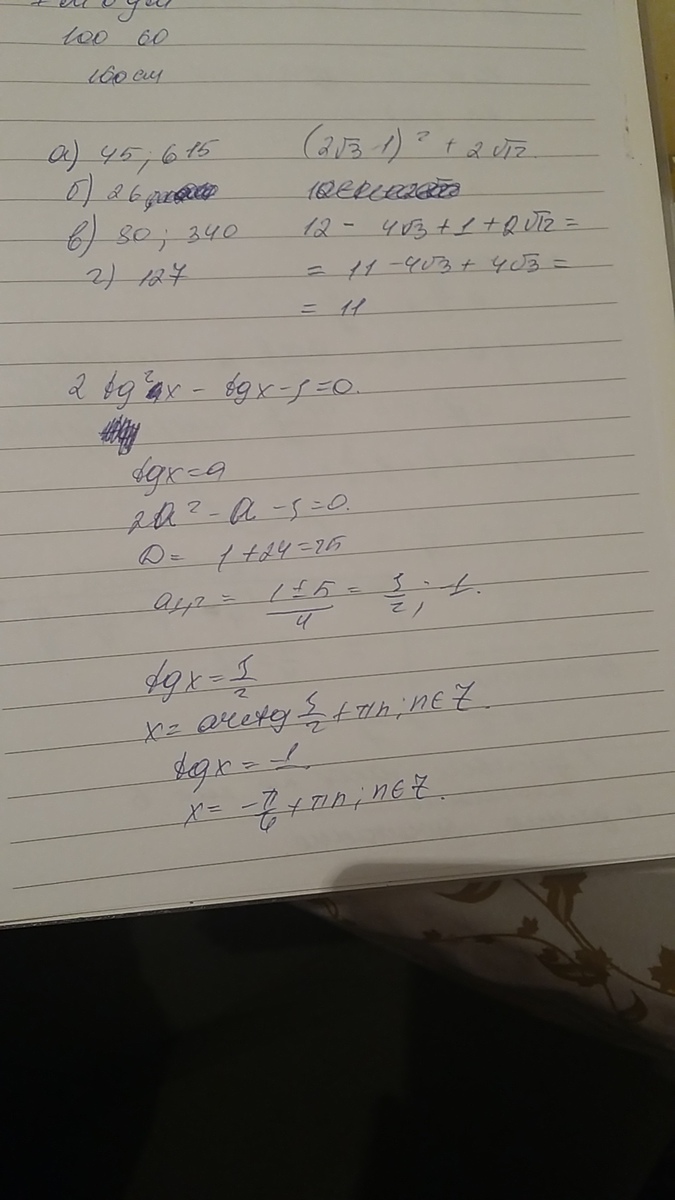 100 60
160 см
а) 45; 615
б) 26
в) 80; 340
г) 127
(2√3-1)² + 2√12
12 - 4√3 + 1 + 2√12 =
= 11 - 4√3 + 4√3 =
= 11
2 tg²x - tgx - 3 = 0.
tgx = a
2a² - a - 3 = 0.
D = 1 + 24 = 25
a₁,₂ = (1 ± 5)/4 = 3/2; -1.
tgx = 3/2
x = arctg 3/2 + πn; n ∈ Z.
tgx = -1.
x = -π/6 + πn; n ∈ Z.